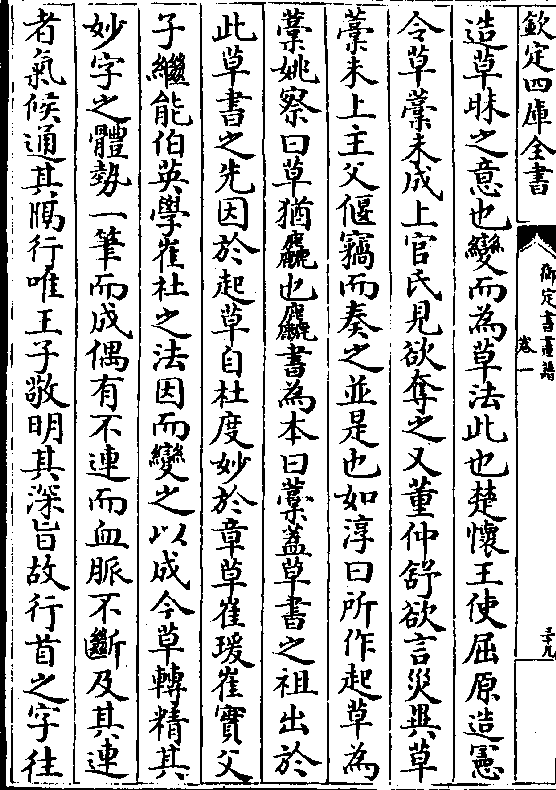 欽定四庫全書
御定書畫譜
卷一
三十九
造草昧之意也變而為草法此也楚懷王使屈原造憲
令草藁未成上官氏見欲奪之又董仲舒欲言災異草
藁未上主父偃竊而奏之並是也如淳曰所作起草為
藁姚察曰草猶麤也麤書為本曰藁蓋草書之祖出於
此草書之先因於起草自杜度妙於章草崔瑗崔寔父
子繼能伯英學崔杜之法因而變之以成今草轉精其
妙字之體勢一筆而成偶有不連而血脈不斷及其連
者氣候通其隔行唯王子敬明其深旨故行首之字往